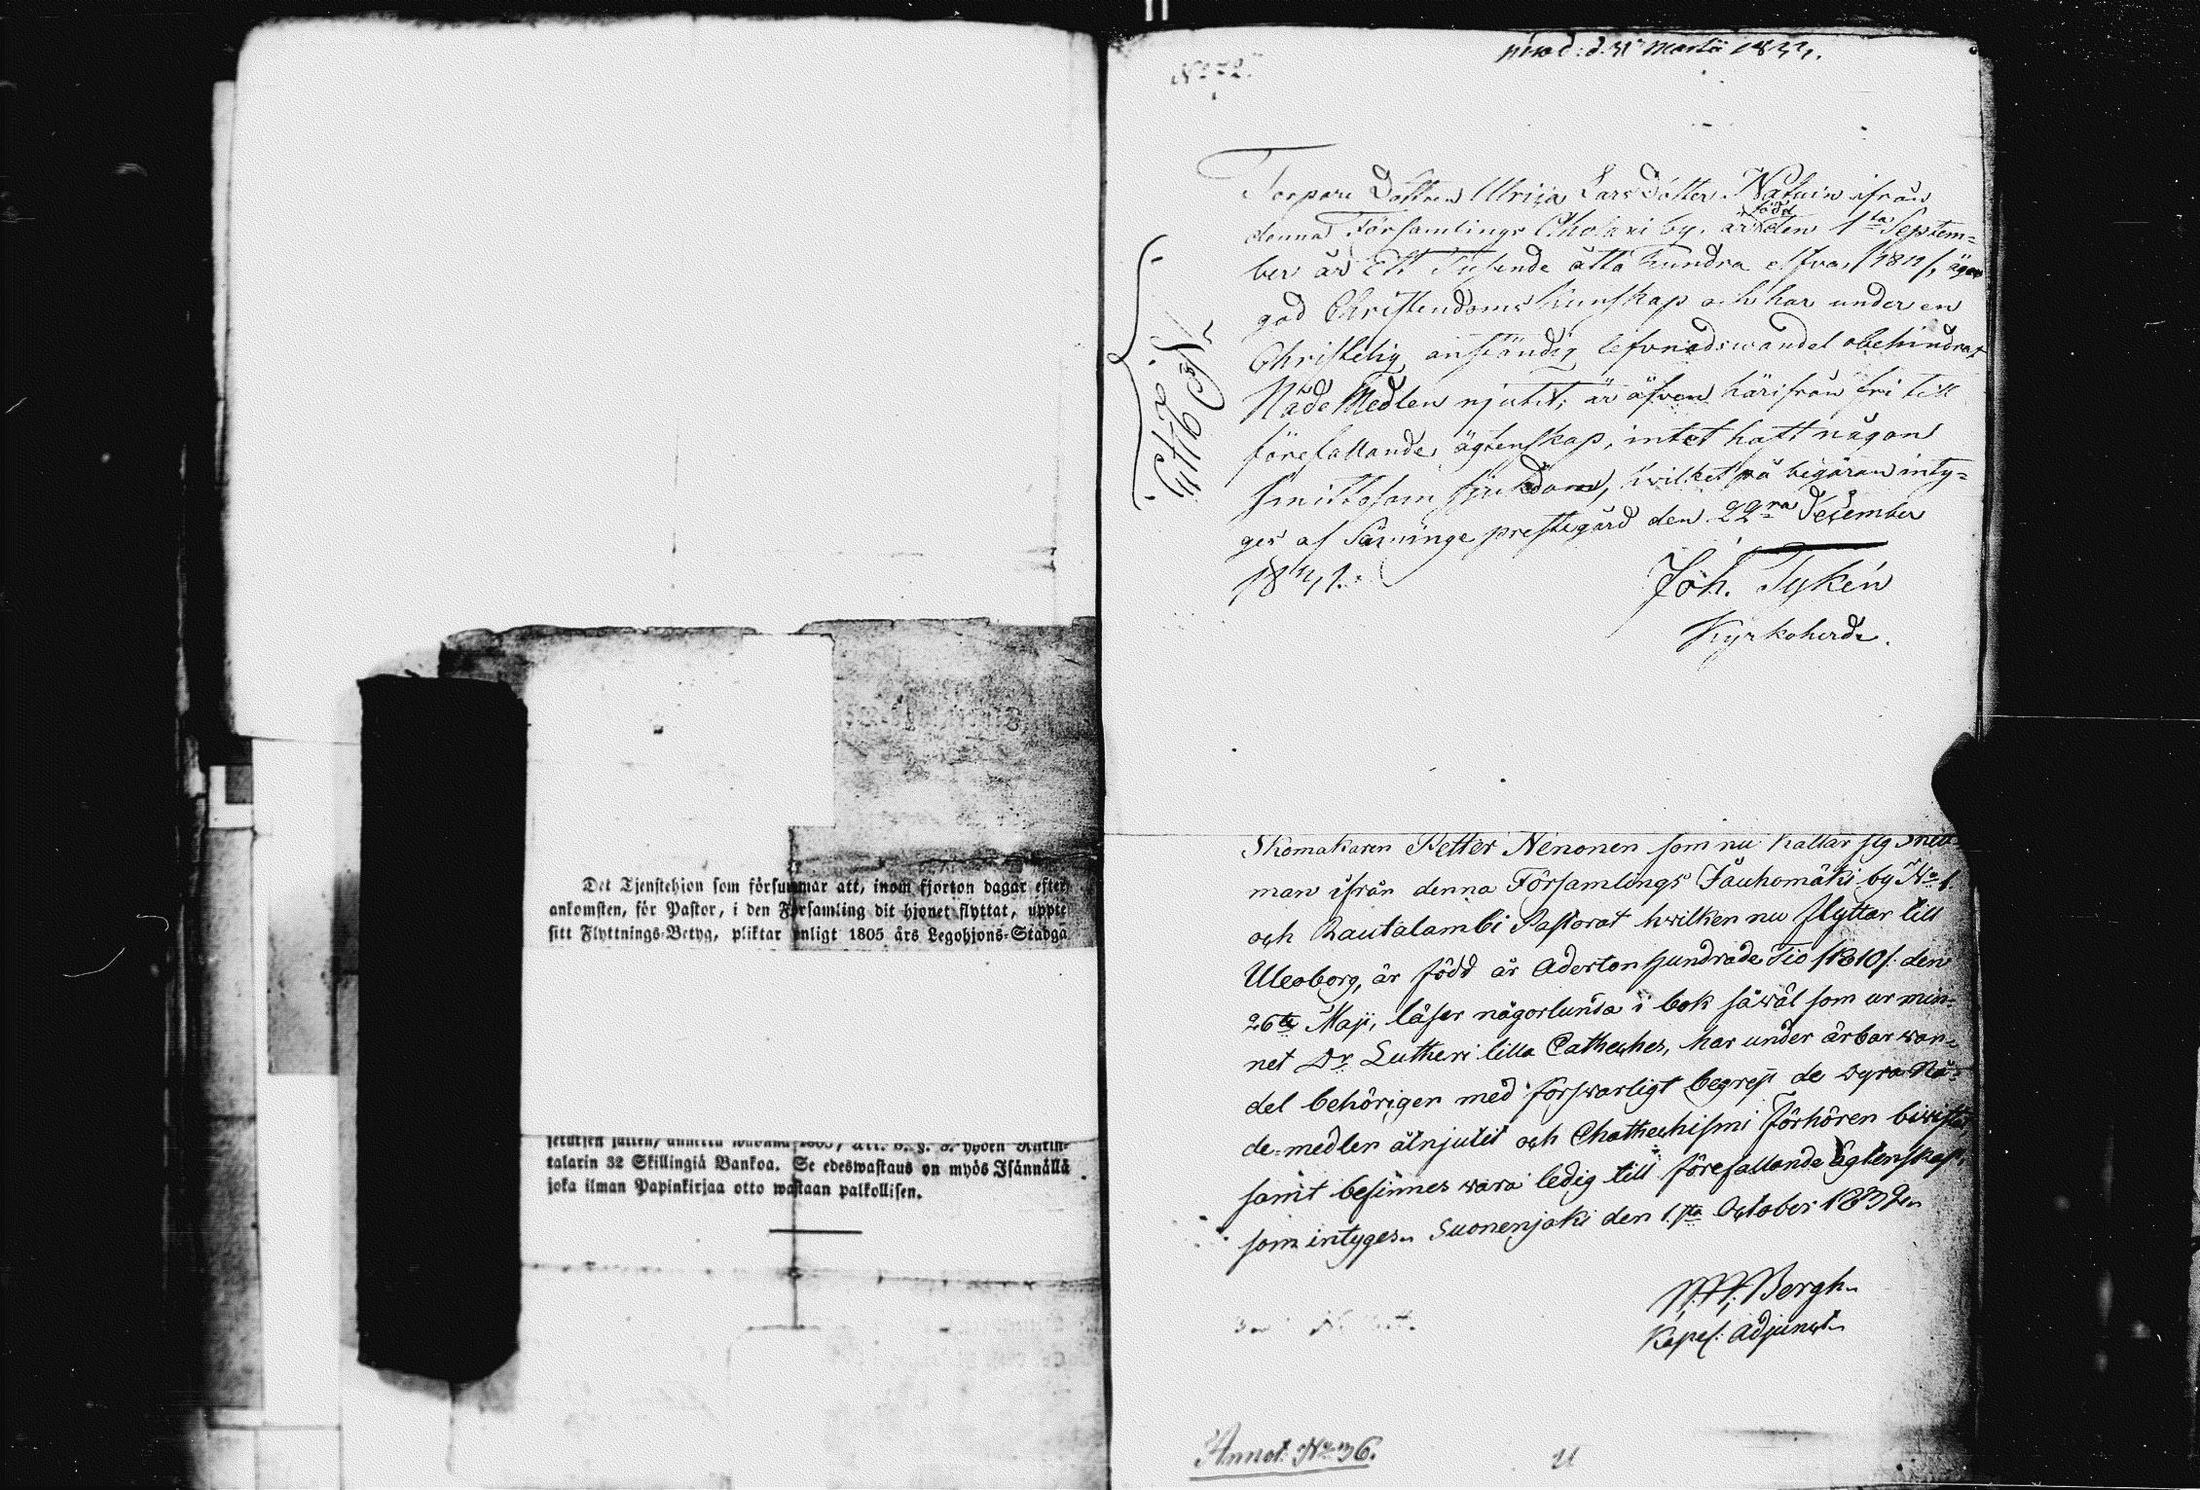 Det Tjenstehjon som försummar att, inom fjorton dagar efter
ankomsten, för Pastor, i den Församling dit hjonet flyttat, uppte
sitt Flyttnings-Betyg, pliktar enligt 1805 års Legohjons-Stadga
talarin 32 Skillingiä Bankoa. Se edeswastaus on myös Isännällä
joka ilman Papinkirjaa otto wastaan palkollisen.
No 72.
d. 31 Martii
Torpare Dottren Ulrica Lars Dotter ifrån
denna Församlings by, är född den 1sta Septem-
ber år Ett Tusende åtta hundra elfva /1811/, äger
god Christendoms kunskap och har under en
Christelig anständig lefvnadswandel obehindrat
Nåde Medlen njutit; är äfven härifrån fri till
förefallande ägtenskap, intet haft någon
smittosam sjukdom, hwilket på begäran inty-
ges af Särvinge prestegård den 22ra December
1841.
Joh. Tykén
Kyrkoherde.
Attest
Skomakaren Petter Nenonen som nu kallar sig
man ifrån denna Församlings Jauhomäki by No 1.
och Rautalambi Pastorat hwilken nu flyttar till
Uleoborg, är född år Adertonhundrade Tio /1810/ den
26te Maji, läser någorlunda i bok såwäl som ur min-
net Dr Lutheri lilla Cateches, har under ärbar wan-
del behörigen med förswarligt begrep de dyra Nå-
de-medlen åtnjutit och Chathechismi Förhören biwistat,
samt befinnes wara ledig till förefallande Egtenskap,
som intyges. Suonenjoki den 1sta October 1832.
Bergh.
Kapel. Adjunct.
Annot. No 36.